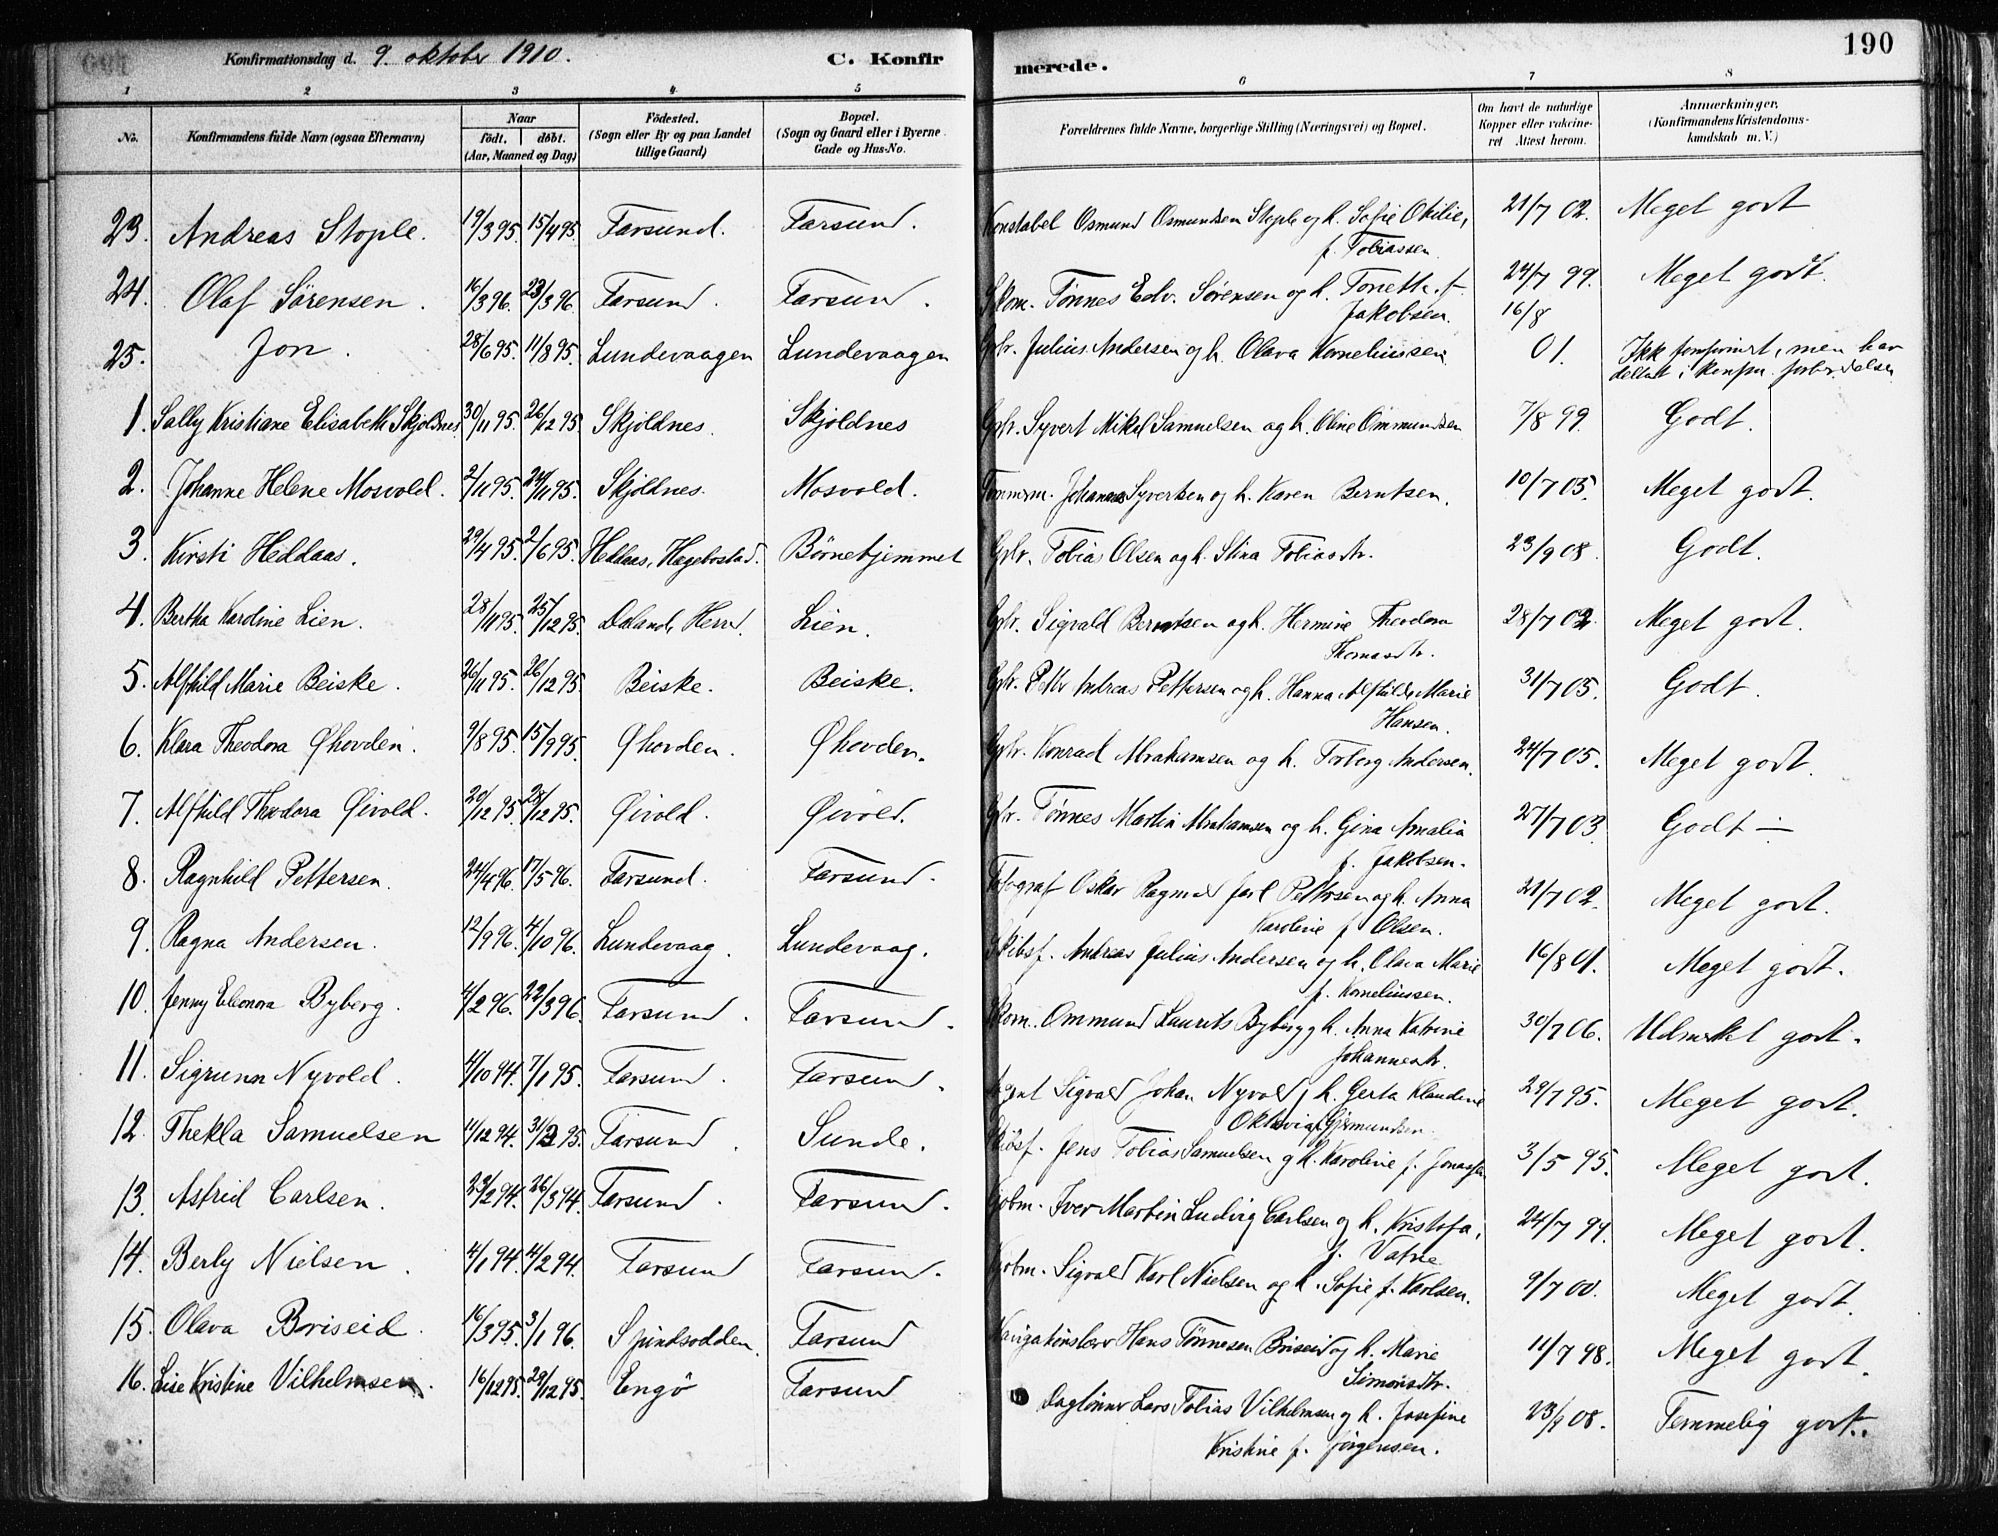 190
Konfirmationsdag d. 9. oktober 1910.
C. Konfir
merede.
1 2 3 4 5 6 7 8
No. Konfirmandens fulde Navn (ogsaa Efternavn) Naar født. døbt. (Aar, Maaned og Dag) Fødested. (Sogn eller By og paa Landet tillige Gaard) Bopæl. (Sogn og Gaard eller i Byerne Gade og Hus-No. Forældrenes fulde Navne, borgerlige Stilling (Næringsvei) og Bopæl. Om havt de naturlige Kopper eller vakcineret Attest herom. Anmærkninger. (Konfirmandens Kristendomskundskab m. V.)
23. Andreas Stople. 19/3 95. 15/4 95. Farsund. Farsund. Konstabel Osmund Osmundsen Stople og h. Sofie Otilie, 21/7 02. Meget godt
f. Tobiassen.
24. Olaf Sørensen. 16/3 96. 23/3 96. Farsund. Farsund. Skom. Tønnes Edv. Sørensen og h. Toneth. f. 24/7 99. Meget godt.
Jakobsen.
25. Jon. 28/6 95. 11/8 95. Lundevaagen Lundevaagen Gbr. Julius Andersen og h. Olava Korneliussen 16/8 01. Ikk konfirmert, men har
deltatt i konfm. forberedelsen
1. Sally Kristiane Elisabeth Skjoldnes. 30/11 95. 26/12 95. Skjoldnes. Skjoldnes Gbr. Syvert Mikal Samuelsen og h. Oline Ommundsen 7/8 99. Godt.
2. Johanne Helene Mosvold. 2/11 95. 24/11 95. Skjoldnes. Mosvold. Tømmerm. Johannes Syvertsen og h. Karen Berntsen. 10/7 05. Meget godt.
3. Kirsti Heddaas. 29/4 95. 2/6 95. Heddaas, Hægebostad. Børnehjemmet Gbr. Tobias Olsen og h. Stina Tobiasdtr. 23/9 08. Godt.
4. Bertha Kardine Lien. 28/11 95. 25/12 95. Dalands Herred. Lien. Gbr. Sigvald Berntsen og h. Hermine Theodora 28/7 02. Meget godt.
Thomasdtr.
5. Alfhild Marie Beiske. 26/11 95. 26/12 95. Beiske. Beiske. Gbr. Petter Andreas Pettersen og h. Hanna Alfhilde Marie 31/7 05. Godt.
Hansen.
6. Klara Theodora Øhovden. 9/8 95. 15/9 95. Øhovden. Øhovden. Gbr. Konrad Abrahamsen og h. Torborg Andersen. 24/7 05. Meget godt.
7. Alfhild Theodora Øivold. 20/12 95. 28/12 95. Øivold. Øivold. Gbr. Tønnes Martin Abrahamsen og h. Gina Amalia 27/7 03. Godt —
f. Jakobsen.
8. Ragnhild Pettersen. 24/4 96. 17/5 96. Farsund. Farsund. Fotograf Oskar Ragnvald Jarl Pettersen og h. Anna 21/7 02. Meget godt.
Karoline f. Olsen.
9. Ragna Andersen. 12/9 96. 4/10 96. Lundevaag. Lundevaag. Skibsf. Andreas Julius Andersen og h. Olava Marie 16/8 01. Meget godt.
f. Korneliussen.
10. Jenny Eleonora Byberg. 4/2 96. 22/3 96. Farsund. Farsund. Skom. Ommund Laurits Byberg og h. Anna Katrine 30/7 06. Udmerket godt.
Johannesdtr.
11. Sigrunn Nyvold. 4/10 94. 7/1 95. Farsund. Farsund. Agent Sigvald Johan Nyvold, h. Gerta Klaudine 29/7 95. Meget godt.
Oktavia Gjermundsen.
12. Thekla Samuelsen 11/12 94. 31/3 95. Farsund. Sunde. Skibsf. Jens Tobias Samuelsen og h. Karoline f. Jonassen 3/5 95. Meget godt.
13. Astrid Carlsen. 23/2 94. 26/3 94. Farsund. Farsund. Kjøbm. Iver Martin Ludvig Carlsen og h. Kristofa, 24/7 99. Meget godt.
f. Vatne
14. Berly Nielsen. 4/1 94. 4/2 94. Farsund Farsund. Kjøbm. Sigvald Karl Nielsen og h. Sofie f. Karlsen. 9/7 00. Meget godt.
15. Olava Briseid. 16/3 95. 3/1 96. Spindsodden. Farsund Navigationslærer Hans Tønnesen Briseid og h. Marie 11/7 98. Meget godt.
Simonsdtr.
16. Lise Kristine Vilhelmsen. 16/12 95. 29/12 95. Engø Farsund Dagløner Lars Tobias Vilhelmsen og h. Josefine 23/9 08. Temmelig godt.
Kristine f. Jørgensen.